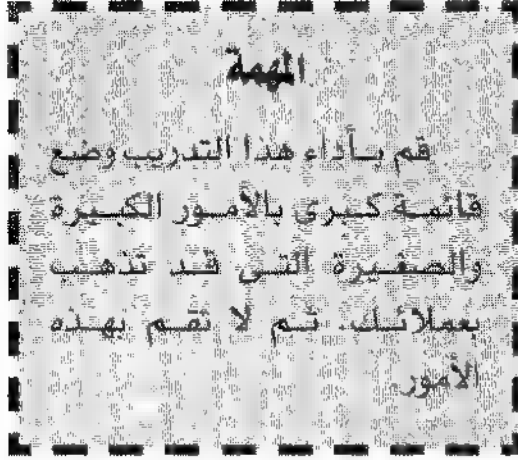 المهمة
قم بأداء هذا التدريب وضع
قائمة كبرى بالأمور الكبيرة
والصغيرة التى قد تذهب
بعملائك. ثم لا تقم بهذه
الأمور.